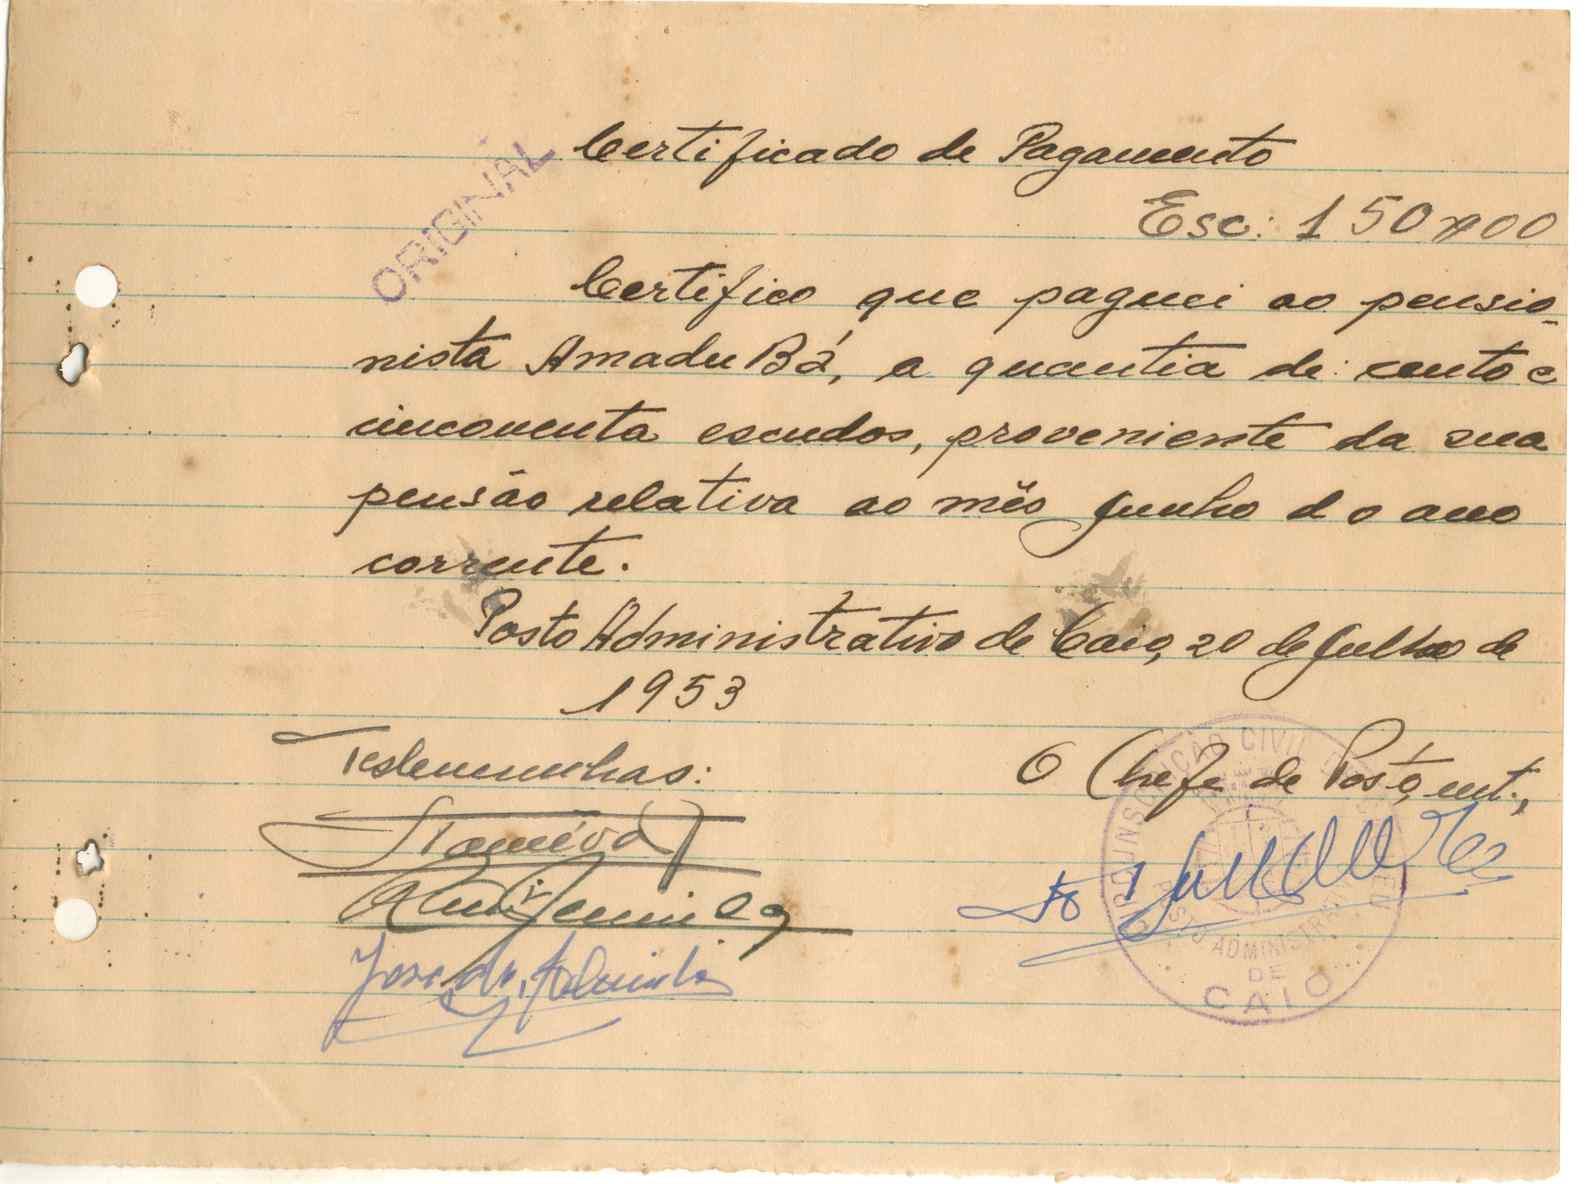 ORIGINAL
Certificado de Pagamento
Esc: 150$00
Certifico que paguei ao pensio-
nista Amadu Bá, a quantia de: cento e
cincoenta escudos, proveniente da sua
pensão relativa ao mês Junho do ano
corrente.
Posto Administrativo de Caio, 20 de Julho de
1953
Testemunhas:
O Chefe de Posto, int.,
CIRCUNSCRIÇÃO CIVIL
POSTO ADMINISTRATIVO
DE
CAIO